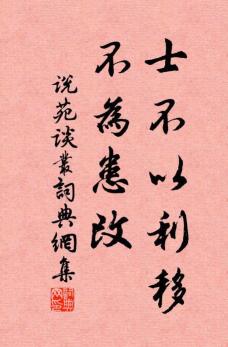 士不以利移
不為患改
说苑谈叢詞典網集